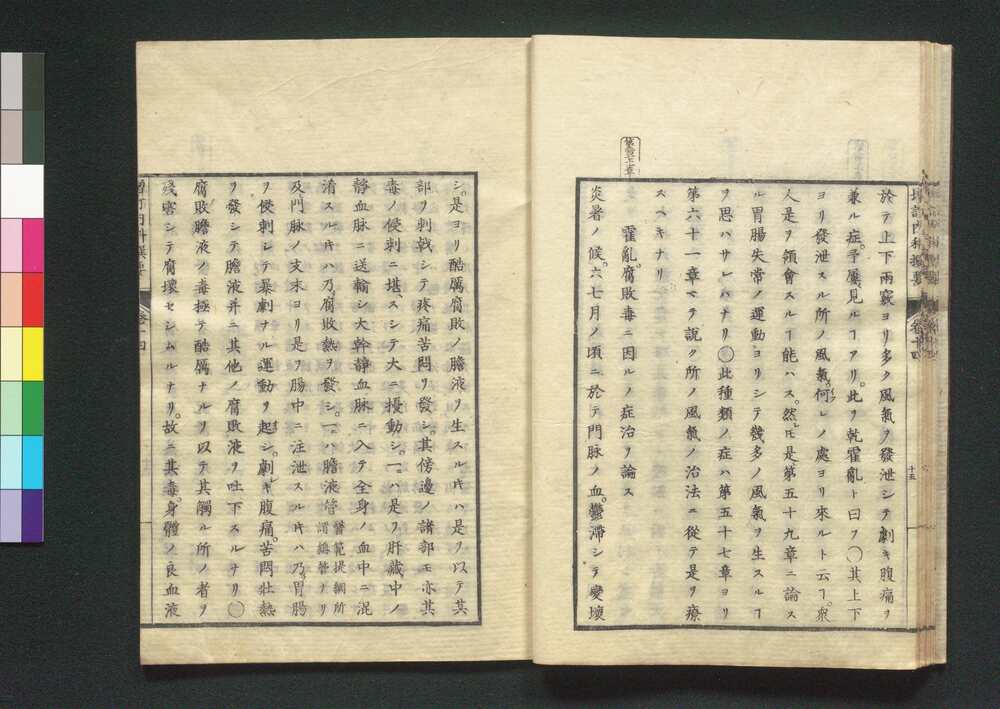 増訂内科撰要 巻十四
十五
於テ上下兩竅ヨリ多ク風氣ヲ發泄シテ劇キ腹痛ヲ
兼ル症。予屢見ルヿアリ。此ヲ乾霍亂ト曰フ◯其上下
ヨリ發泄スル所ノ風氣何レノ處ヨリ來ルト云フヿ。衆
人是ヲ領會スルヿ能ハス。然レ𪜈是第五十九章ニ論ス
ル胃腸失常ノ運動ヨリシテ幾多ノ風氣ヲ生スルヿ
ヲ思ハサレハナリ◯此種類ノ症ハ第五十七章ヨリ
第六十一章マテ說ク所ノ風氣ノ治法ニ從テ是ヲ療
スヘキナリ
第六十二章
霍亂。腐敗毒ニ因ルノ症治ヲ論ス
炎暑ノ候。六七月ノ頃ニ於テ門脉ノ血。鬱滯シテ變壞
シ。是ヨリ酷厲腐敗ノ膽液ヲ生スル𪜈ハ是ヲ以テ其
部ヲ刺戟シテ疼痛苦悶ヲ發シ。其傍邊ノ諸部モ亦其
毒ノ侵刺ニ堪ヘスシテ大ニ擾動シ。一ハ是ヲ肝臟中ノ
靜血脉ニ送輸シ大幹靜血脉ニ入テ全身ノ血中ニ混
淆スル𪜈ハ乃腐敗熱ヲ發シ。一ハ膽液管 醫範提綱所謂輸膽管ナリ
及門脉ノ支末ヨリ是ヲ腸中ニ注泄スル𪜈ハ乃胃腸
ヲ侵刺シテ暴劇ナル運動ヲ起シ。劇キ腹痛。苦悶壯熱
ヲ發シテ膽液并ニ其他ノ腐敗液ヲ吐下スルナリ◯
腐敗膽液ノ毒極テ酷厲ナルヲ以テ其觸ル所ノ者ヲ
殘害シテ腐壞セシムルナリ。故ニ其毒。身體ノ良血液
増訂内科撰要 巻十四